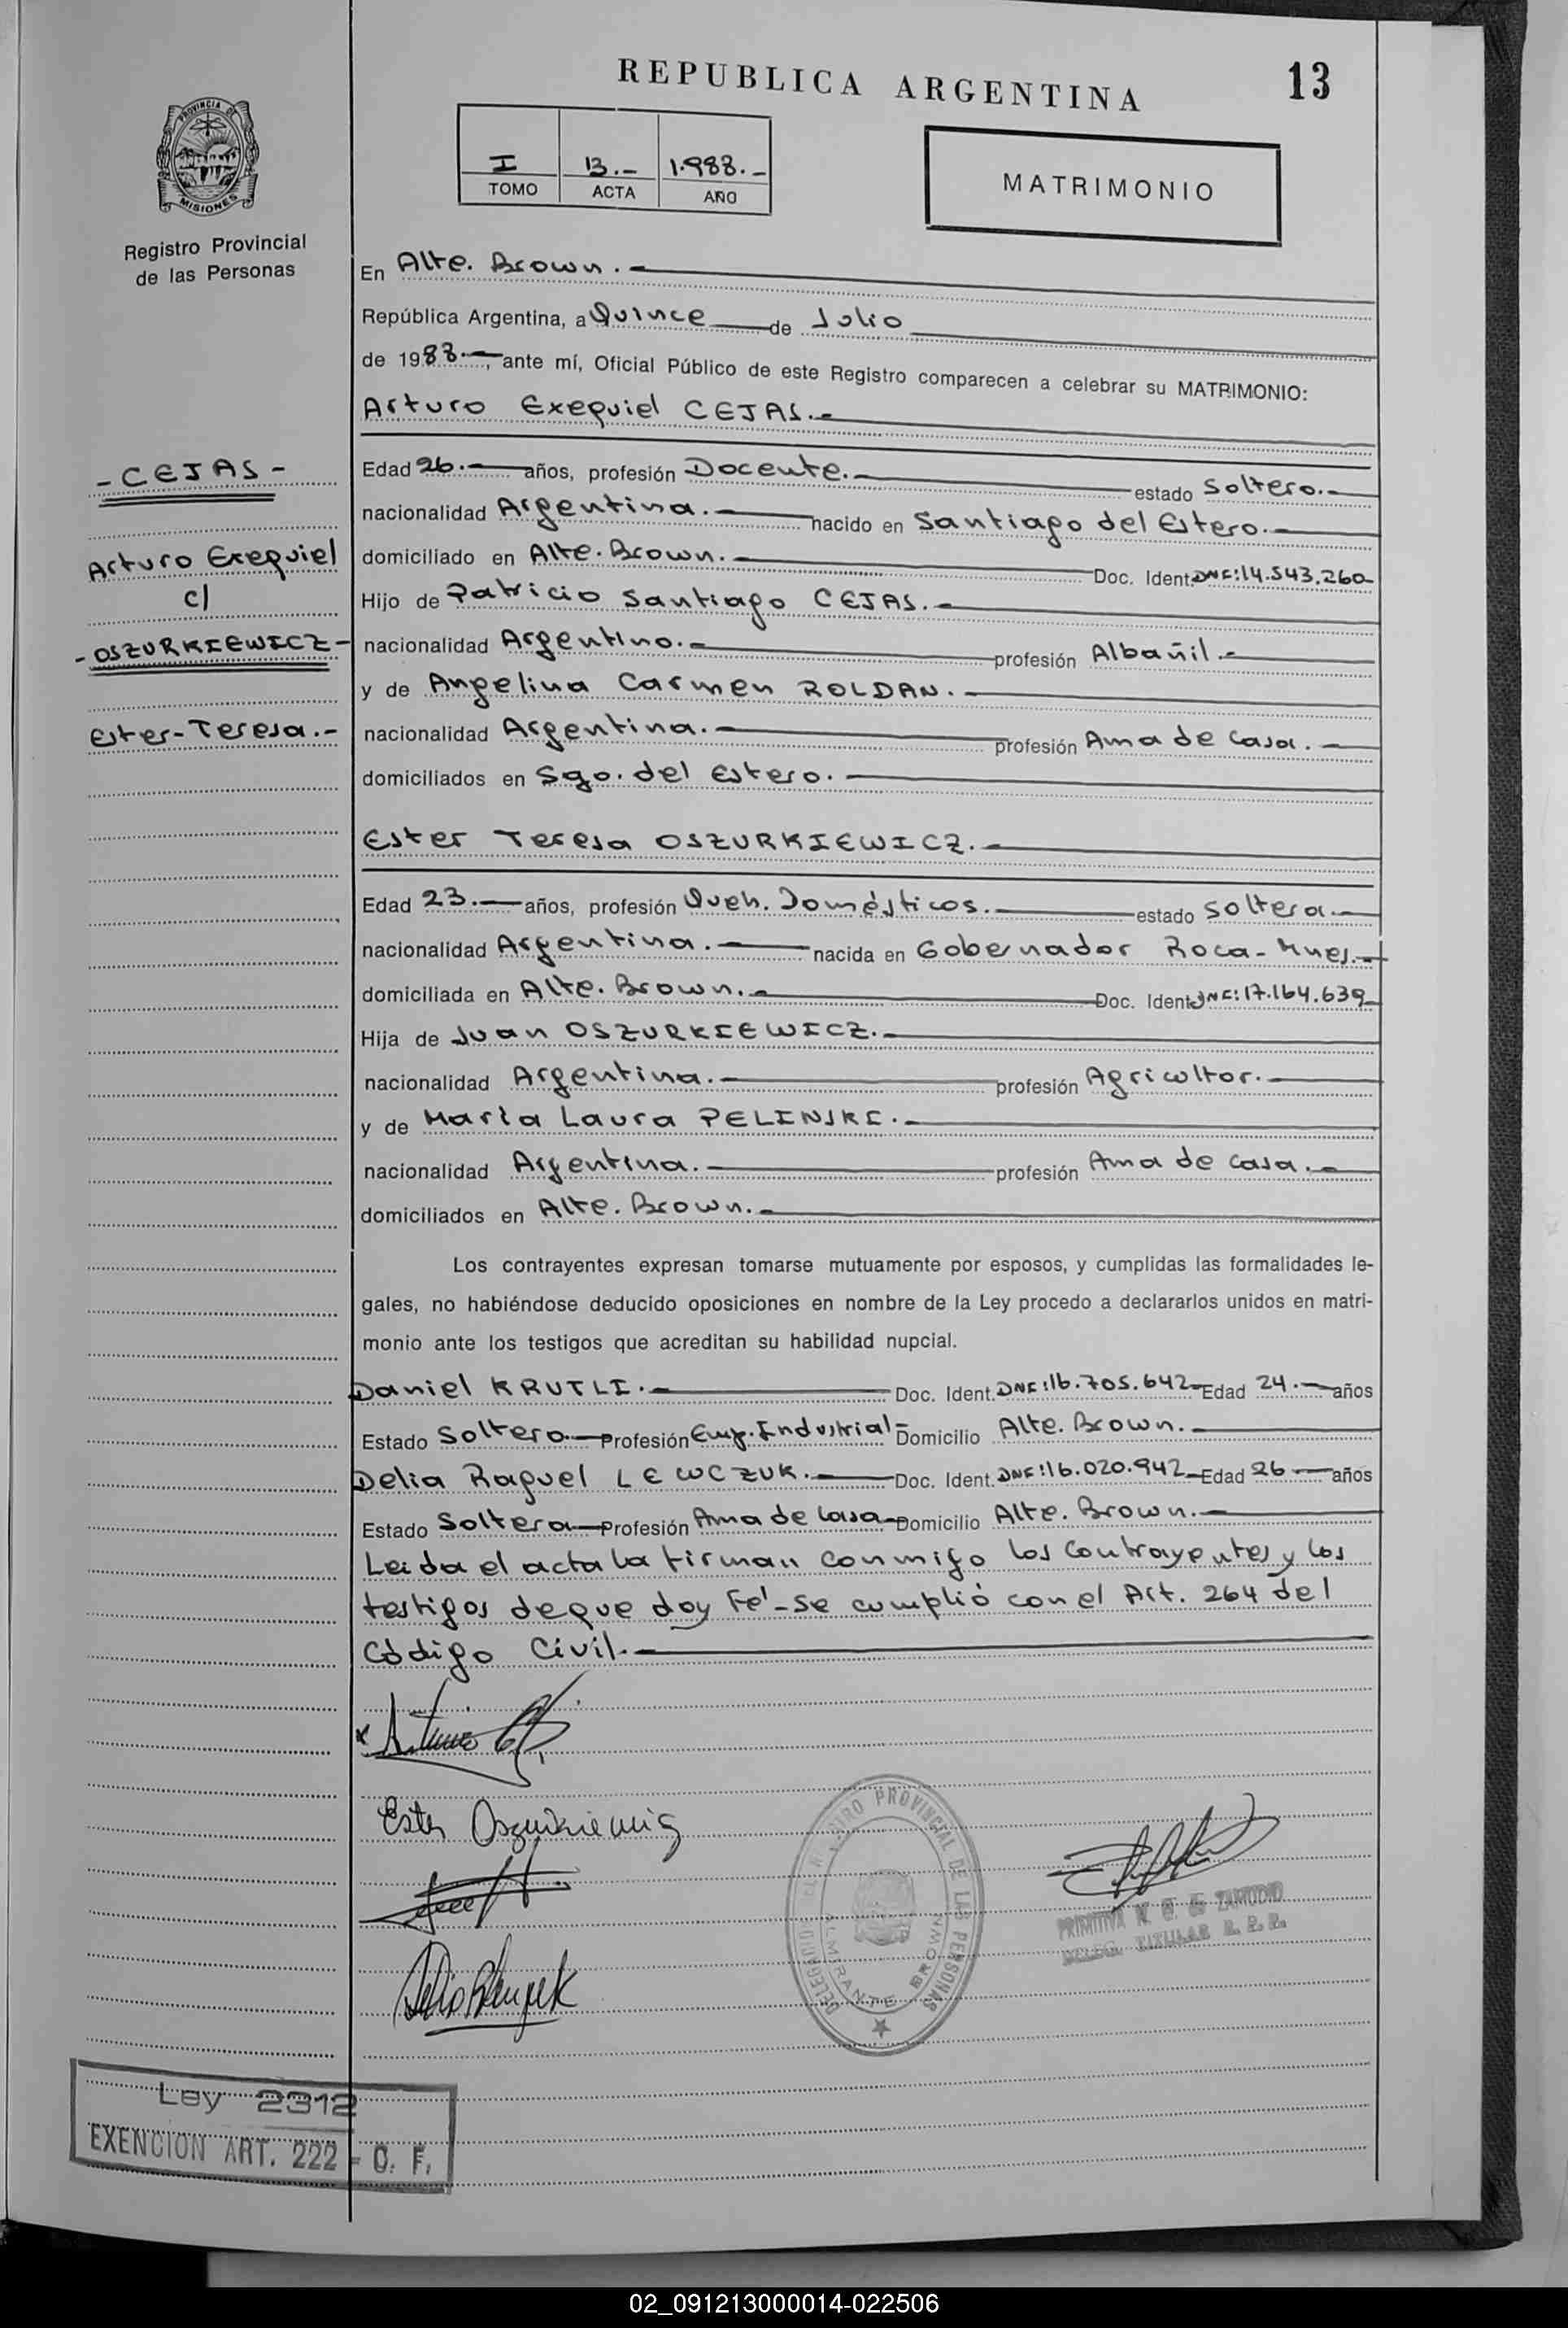 REPUBLICA ARGENTINA
13
PROVINCIA DE
MISIONES
Registro Provincial
de las Personas
I 13.- 1.988.-
TOMO ACTA AÑO
MATRIMONIO
En Alte. Brown.-
República Argentina, a Quince de Julio
de 1988.-, ante mí, Oficial Público de este Registro comparecen a celebrar su MATRIMONIO:
Arturo Exequiel CEJAS.-
- CEJAS -
Arturo Exequiel
c/
- OSZURKIEWICZ -
Ester-Teresa.-
Edad 26.- años, profesión Docente.- estado Soltero.-
nacionalidad Argentina.- nacido en Santiago del Estero.-
domiciliado en Alte. Brown.- Doc. Ident. DNI: 14.543.260-
Hijo de Patricio Santiago CEJAS.-
nacionalidad Argentino.- profesión Albañil.-
y de Angelina Carmen ROLDAN.-
nacionalidad Argentina.- profesión Ama de Casa.-
domiciliados en Sgo. del Estero.-
Ester Teresa OSZURKIEWICZ.-
Edad 23.- años, profesión Queh. Domésticos.- estado Soltera.-
nacionalidad Argentina.- nacida en Gobernador Roca - Mnes.-
domiciliada en Alte. Brown.- Doc. Ident. DNI: 17.164.639-
Hija de Juan OSZURKIEWICZ.-
nacionalidad Argentina.- profesión Agricultor.-
y de María Laura PELINSKI.-
nacionalidad Argentina.- profesión Ama de Casa.-
domiciliados en Alte. Brown.-
Los contrayentes expresan tomarse mutuamente por esposos, y cumplidas las formalidades le-
gales, no habiéndose deducido oposiciones en nombre de la Ley procedo a declararlos unidos en matri-
monio ante los testigos que acreditan su habilidad nupcial.
Daniel KRUTLI.- Doc. Ident. DNI: 16.705.642- Edad 24.- años
Estado Soltero.- Profesión Emp. Industrial- Domicilio Alte. Brown.-
Delia Raquel LEWCZUK.- Doc. Ident. DNI: 16.020.942- Edad 26- años
Estado Soltera- Profesión Ama de Casa- Domicilio Alte. Brown.-
Leida el acta la firman conmigo los Contrayentes y los
testigos deque doy Fé - Se cumplió con el Art. 264 del
Código Civil.-
Ester
DELEGACION REGISTRO PROVINCIAL DE LAS PERSONAS
ALMIRANTE BROWN
PRIMITIVA DE ZAMUDIO
DELEG. TITULAR
Ley 2312
EXENCION ART. 222 - C. F.
02_091213000014-022506